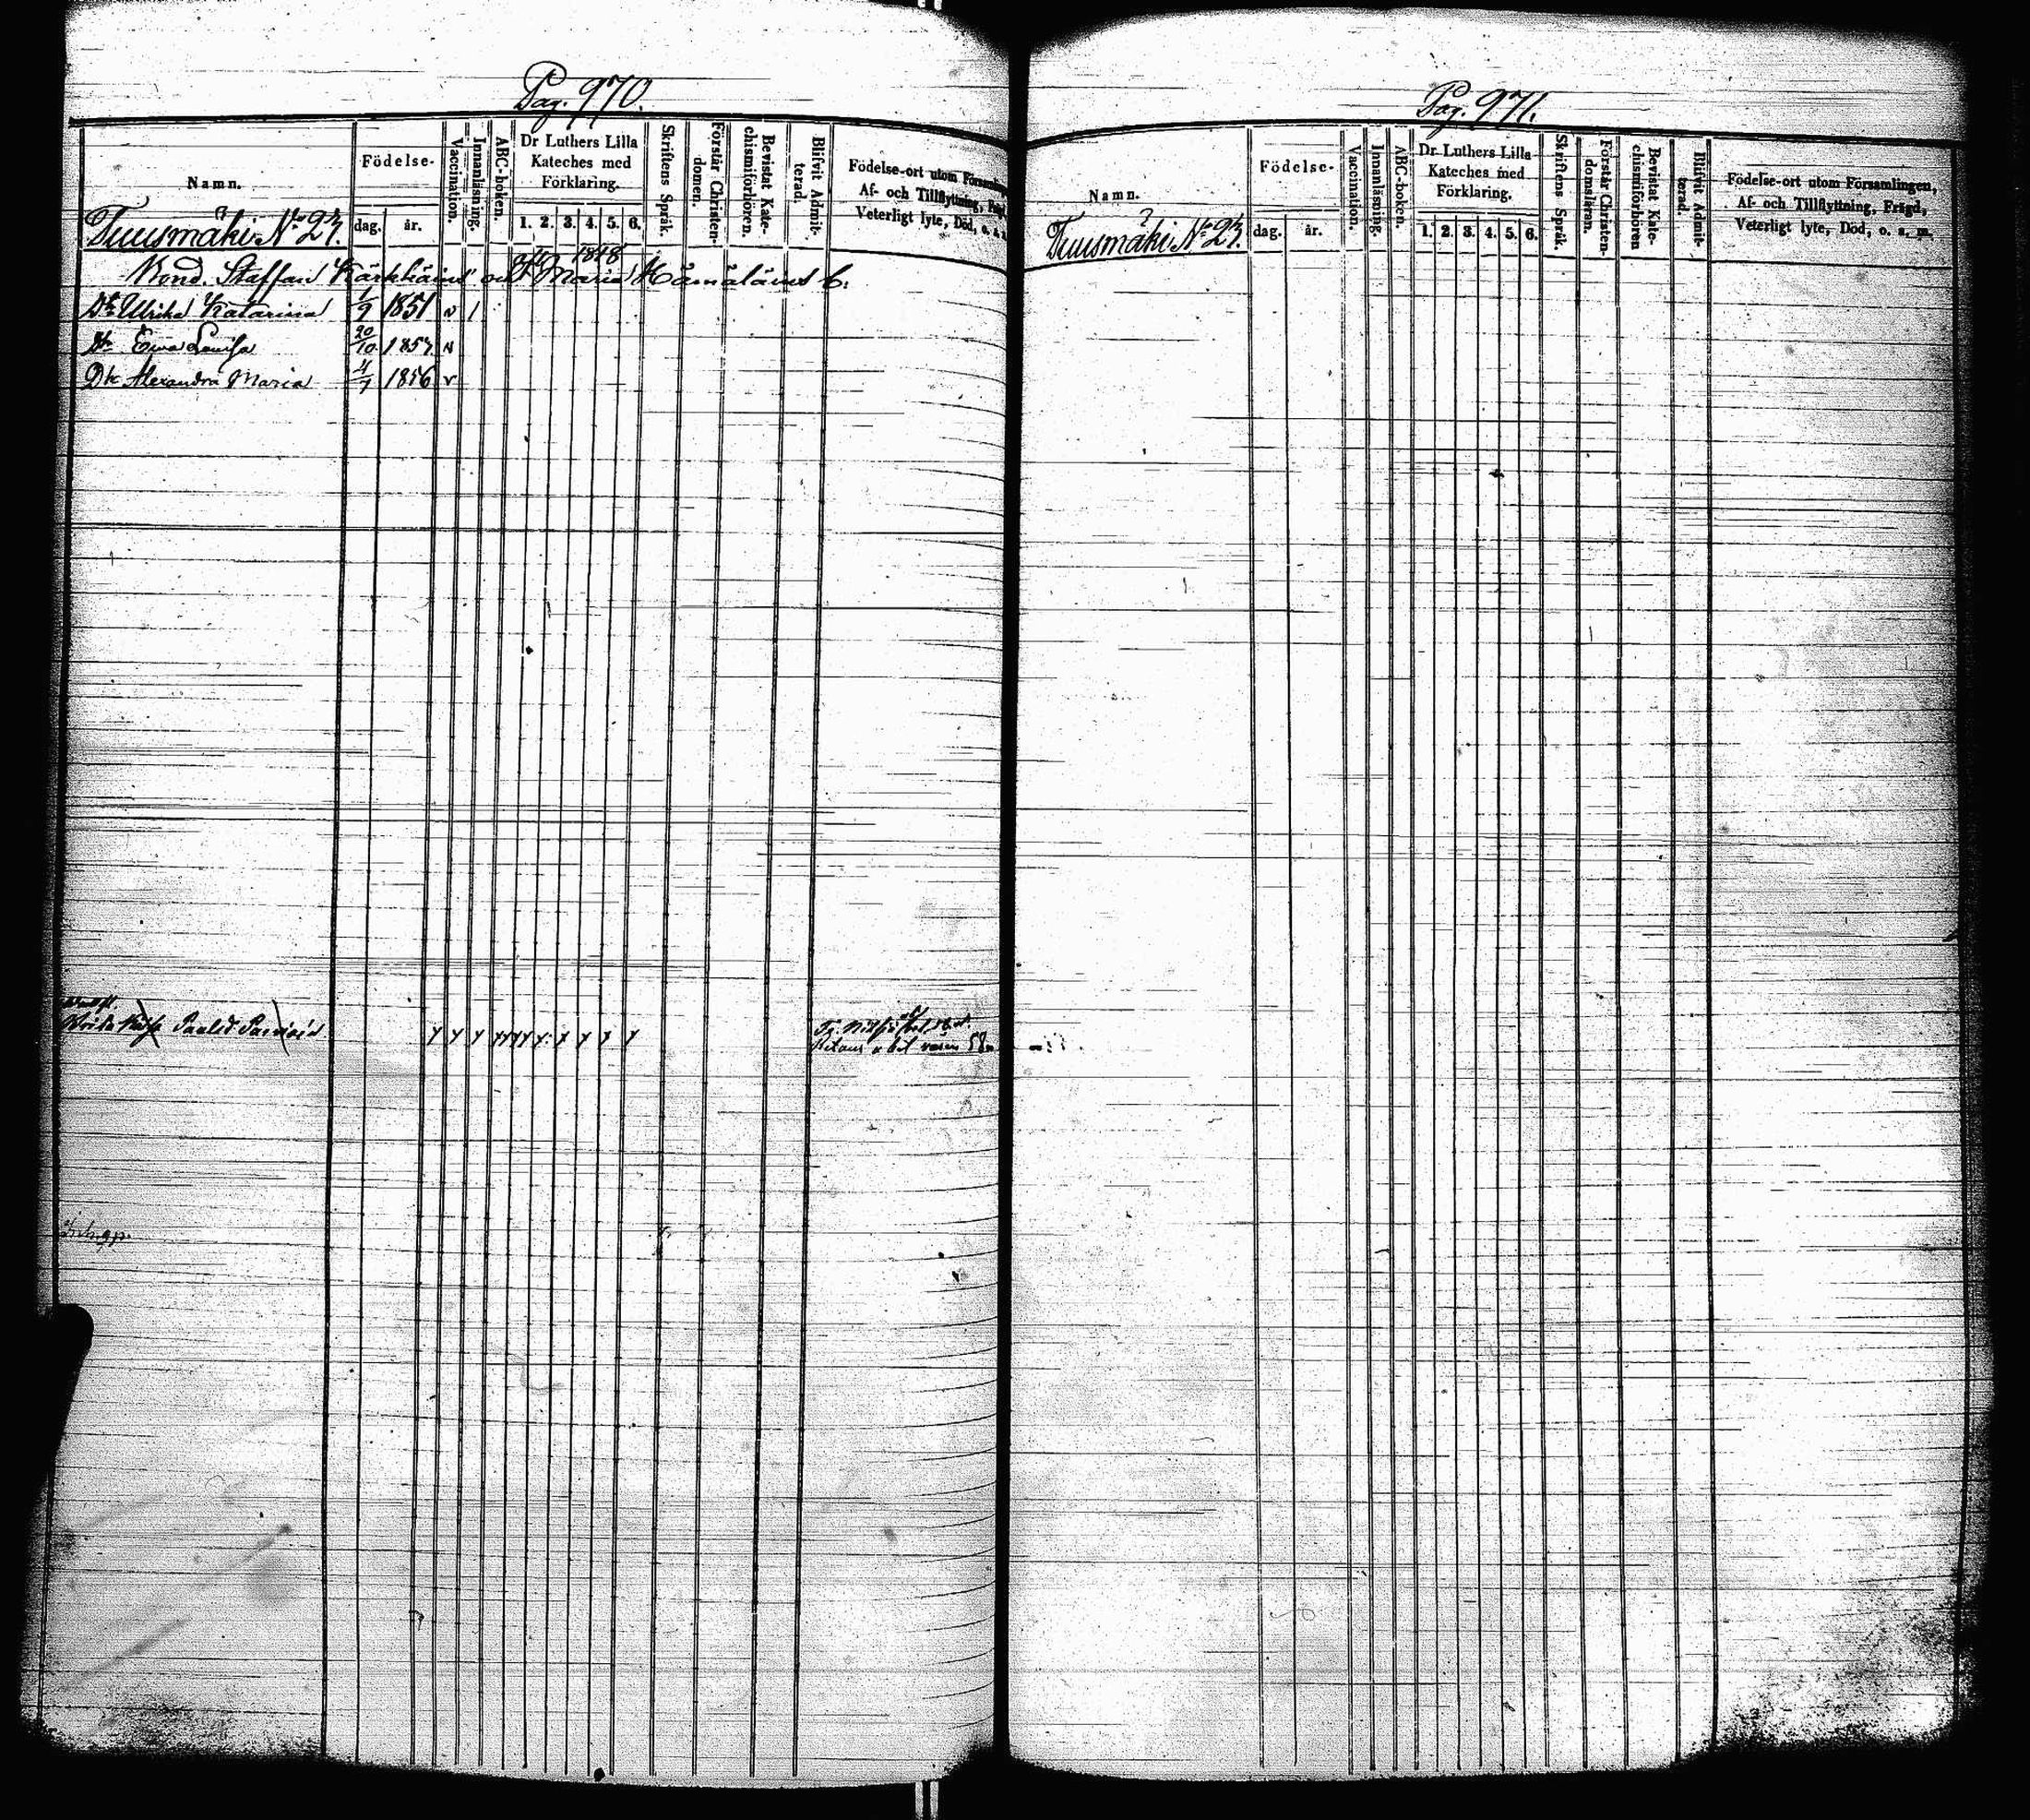 Pag. 970.
Namn.
Födelse-
dag. år.
Vaccination.
Innanläsning.
ABC-boken.
Dr Luthers Lilla
Kateches med
Förklaring.
1. 2. 3. 4. 5. 6.
Skriftens Språk.
Förstår Christen-
domen.
Bevistat Kate-
chismiförhören.
Blifvit Admit-
terad.
Födelse-ort utom
Af- och Tillflyttning,
Veterligt lyte, Död, o. s.
Tuusmäki No 23.
Staffan Maria Hämäläinen
Ulrika Katarina 1/9 1851
Ewa Lovisa 20/10
Alexandra Maria 4/7 1856
Pag. 971.
Namn.
Födelse-
dag. år.
Vaccination.
Innanläsning.
ABC-boken.
Dr Luthers Lilla
Kateches med
Förklaring.
1. 2. 3. 4. 5. 6.
Skriftens Språk.
Förstår Christen-
domsläran.
Bevistat Kate-
chismiförhören
Blifvit Admit-
terad.
Födelse-ort utom Församlingen,
Af- och Tillflyttning, Frägd,
Veterligt lyte, Död, o. s. m.
Tuusmäki No 23.